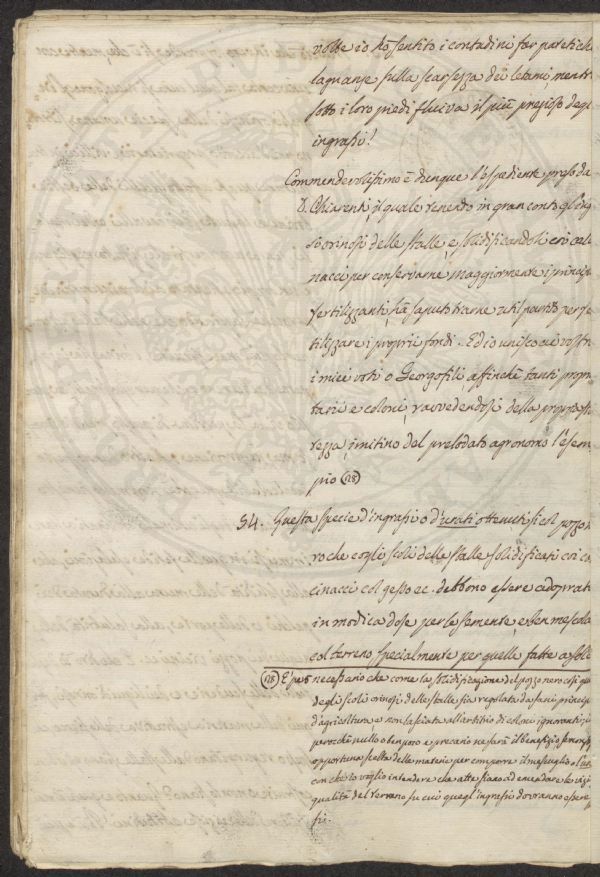 volte io hò sentito i contadini far patetiche
lagnanze sulla scarsezza dei letami, mentre
sotto i loro piedi fluiva il più prezioso degl
ingrassi!
Commendevolissimo è dunque l'espediente preso da
D. Chiarenti, il quale tenendo in gran conto gli
orinosi delle stalle, e solidificandoli coi calci
nacci per conservarne maggiormente i principj
fertilizzanti, ha saputo trarne util partito per fer
tilizzare i proprii fondi. Ed io unisco ai vostri
i miei voti o Georgofili, affinchè tanti propri
tarii e coloni, ravvedendosi della propria
rezza, imitino del prelodato agronomo l'esem
pio (128)
54. Questa specie d'ingrassi o d'urati ottenuti sì col pozzo ne
ro che cogli scoli delle stalle solidificati coi cal
cinacci col gesso ec. debbono essere adoprati
in modica dose per le semente, e ben mescola
col terreno specialmente per quelle fatte a solc
(128) È però necessario che come la solidificazione del pozzo nero così que
degli scoli orinosi delle stalle sia regolata da sani principj
d'agricoltura, e non lasciata all'arbitrio di coloni ignoranti;
perocchè nullo o ben poco e precario ne sarà il benefizio senza
opportuna scelta delle materie per comporre il mescuglio
con che io voglio intendere che atte siano ad emendare le
qualità del terreno su cui quegl'ingrassi dovranno essere
si.